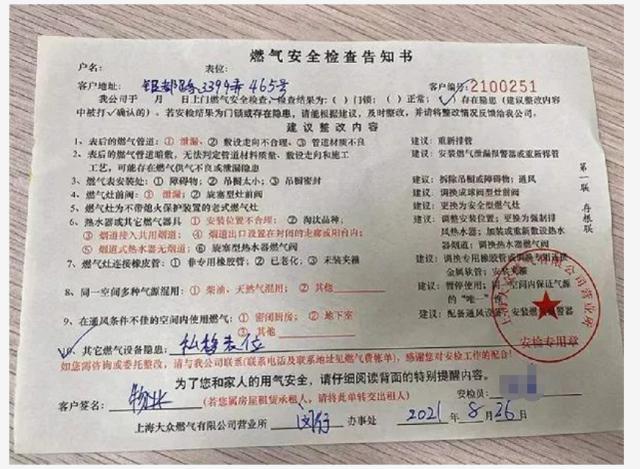 燃气安全检查告知书
户名： 表位：
客户地址：银都路3399弄465号 客户编号：2100251
我公司于 月 日上门燃气安全检查，检查结果为：( )门锁；( )正常；(✓)存在隐患（建议整改内容
中被打✓确认的）。若安检结果为门锁或存在隐患，请能根据建议，及时整改，并请将整改情况反馈给我公司。
建议整改内容
1、表后的燃气管道：① 泄漏、② 敷设走向不合理、③ 管道材质不良 建议：重新排管
2、表后的燃气管道暗敷，无法判定管道材料质量、敷设走向和施工 建议：安装燃气泄漏报警器或重新排管
工艺，可能存在燃气供气不良或泄漏隐患
3、燃气表安装处：① 障碍物；② 吊橱太小；③ 吊橱密封 建议：拆除吊橱或障碍物；通风
4、燃气灶前阀：① 泄漏；② 旋塞型灶前阀 建议：调换成球阀型灶前阀
5、燃气灶为不带熄火保护装置的老式燃气灶。 建议：更换为安全型燃气灶
6、热水器或其它燃气器具 ① 安装位置不合理；② 淘汰品种； 建议：调整安装位置；更换为强制排
③ 烟道接入共用烟道；④ 烟道出口设置在封闭的走廊或阳台内； 风热水器；加装或重新敷设热水
⑤ 烟道式热水器无烟道；⑥ 旋塞型热水器燃气阀 器烟道；调换热水器燃气阀
7、燃气灶连接橡皮管：① 非专用橡胶管；② 已老化；③ 未装夹箍 建议：调换专用橡胶管或调换专用连接
金属软管；安装夹箍
8、同一空间多种气源混用：① 柴油、天然气混用；② 其他 建议：暂停使用；同一空间内保证气源
的“唯一”性
9、在通风条件不佳的空间内使用燃气：① 密闭厨房；② 地下室 建议：配备通风设备；安装燃气报警器
③ 其他
✓ 其它燃气设备隐患：私移表位
如您需咨询或委托整改，请与我公司联系(联系电话及联系地址见燃气费帐单)，感谢您对安检工作的配合！
为了您和家人的用气安全，请仔细阅读背面的特别提醒内容。
客户签名：物业 (若您属房屋租赁承租人，请将此单转交出租人) 安检员：
上海大众燃气有限公司营业所 闵行 办事处 2021 年 8 月 26 日
第一联 存根联
安检专用章